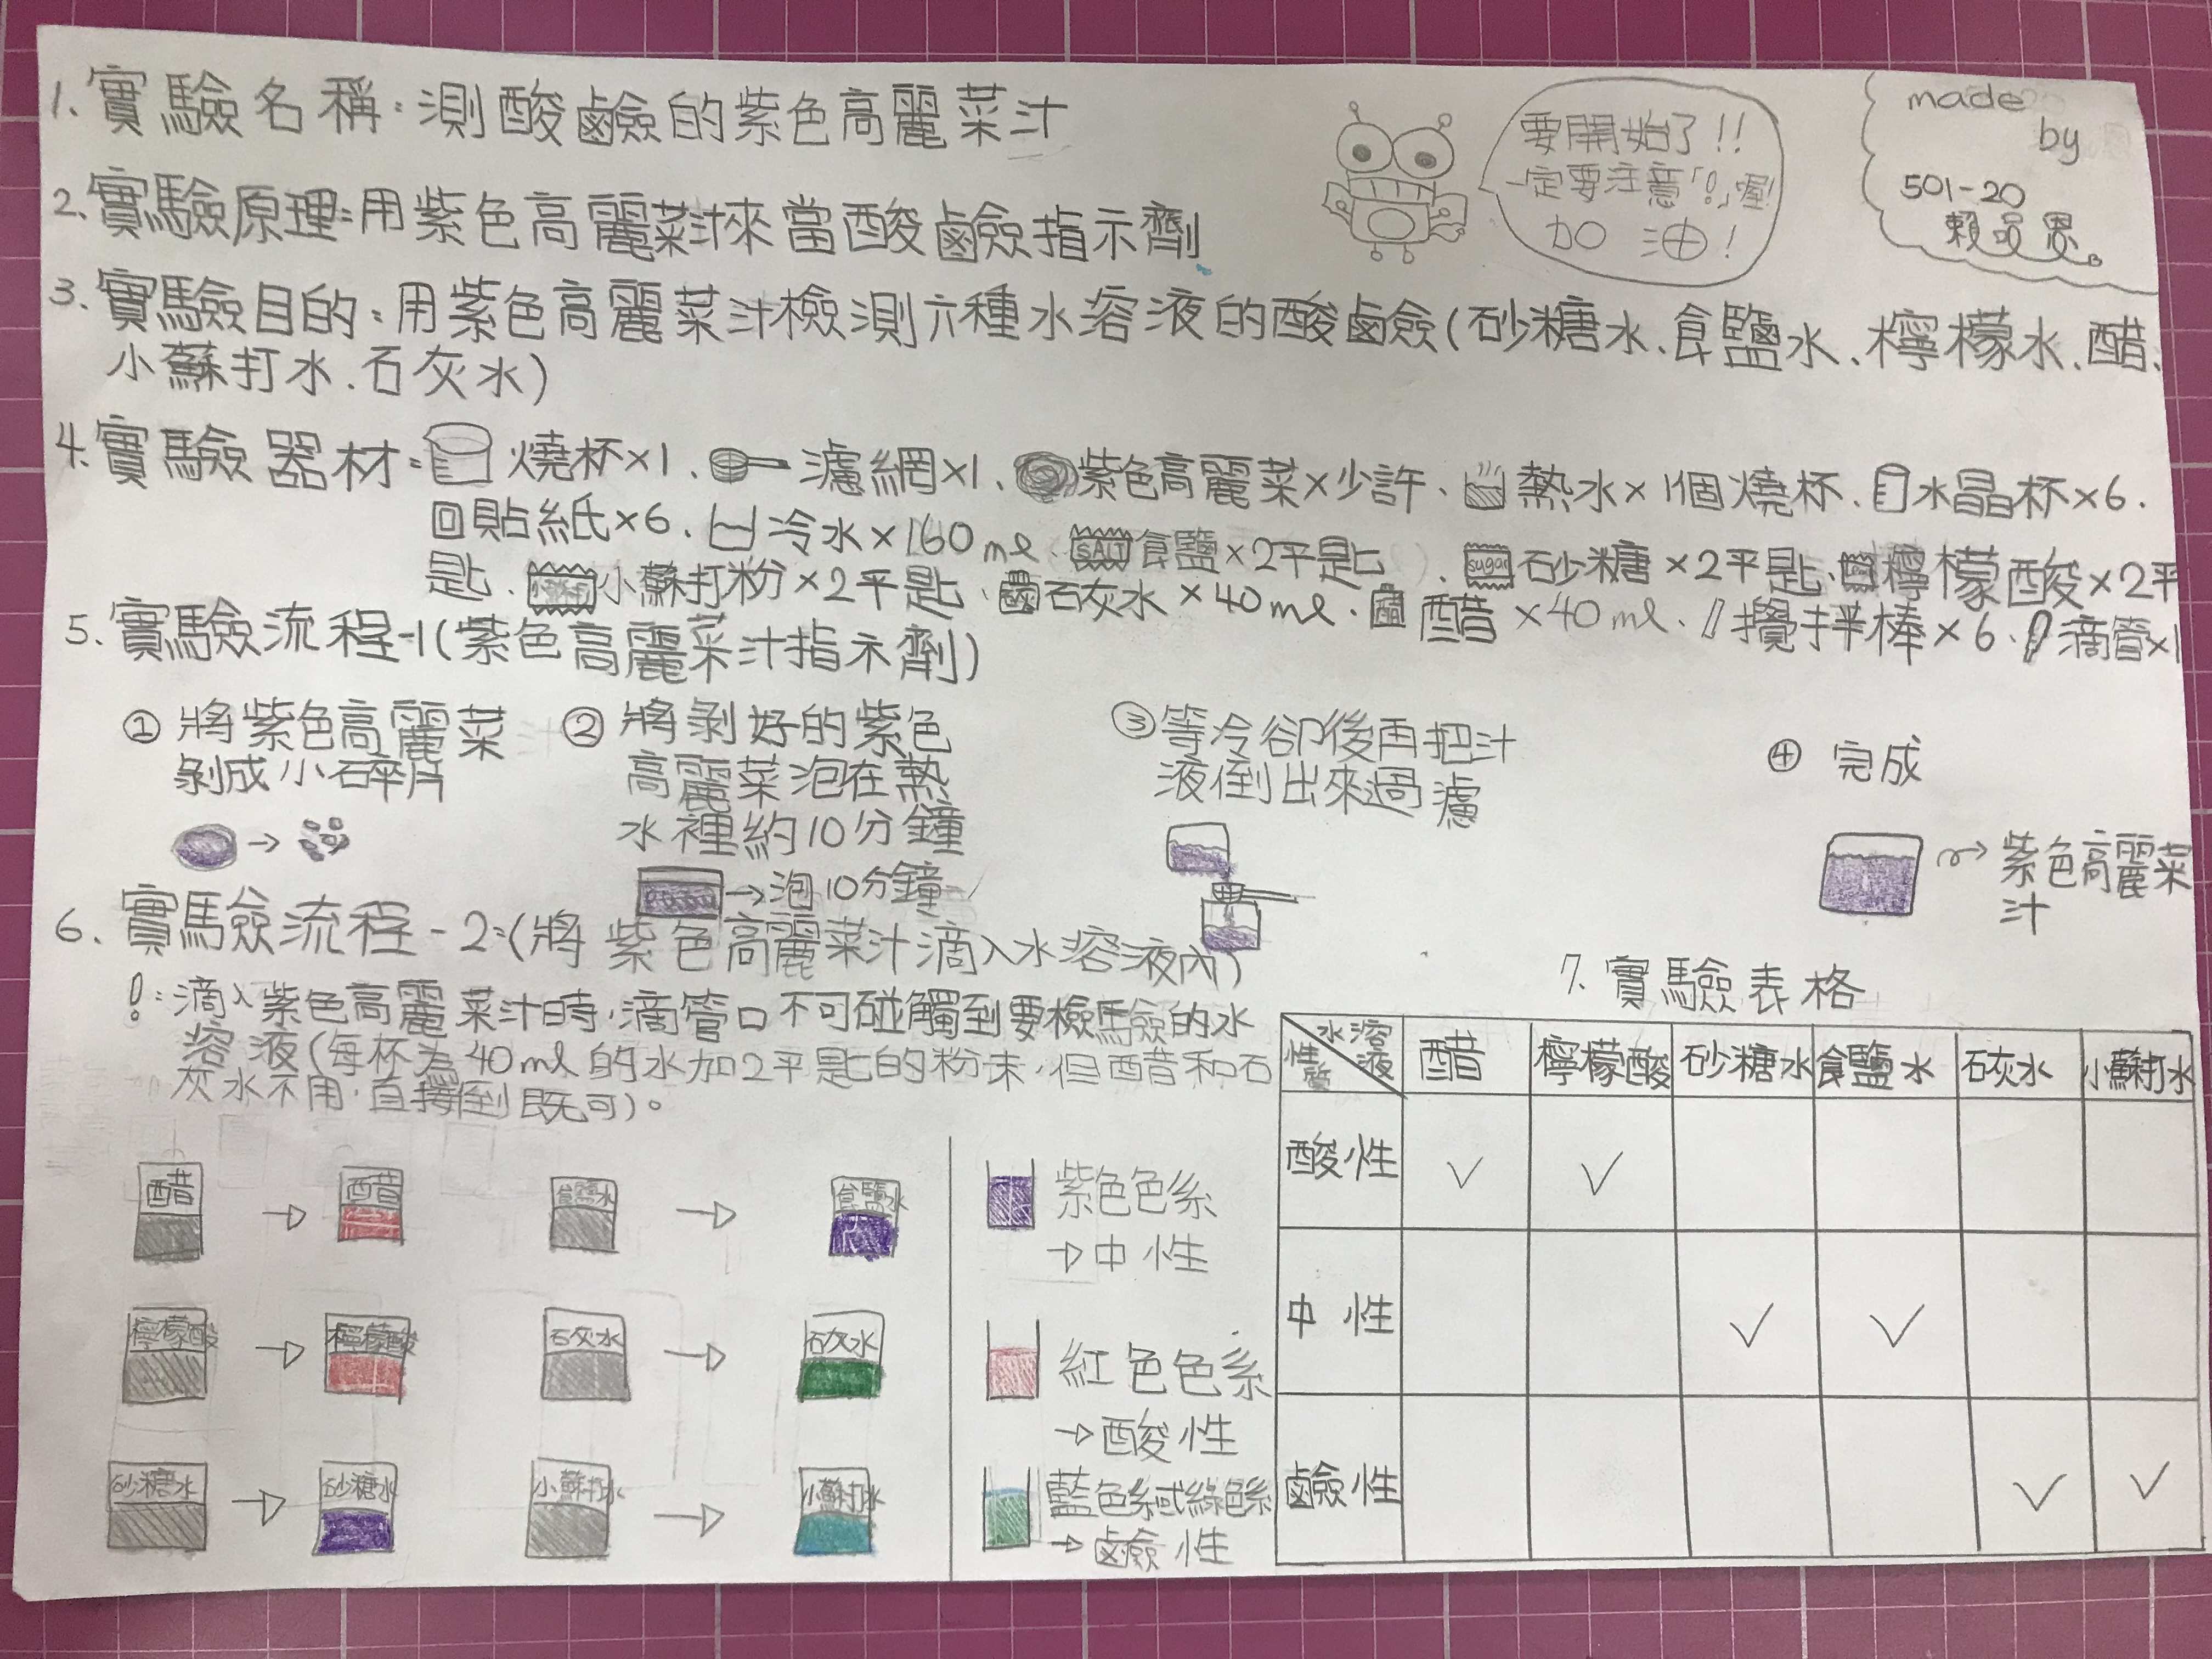 1. 實驗名稱：測酸鹼的紫色高麗菜汁
要開始了!!
一定要注意「!」喔!
加油!
made
by
501-20
2. 實驗原理：用紫色高麗菜汁來當酸鹼指示劑
3. 實驗目的：用紫色高麗菜汁檢測六種水溶液的酸鹼(砂糖水、食鹽水、檸檬水、醋、
小蘇打水、石灰水)
4. 實驗器材：燒杯×1、濾網×1、紫色高麗菜×少許、熱水×1個燒杯、水晶杯×6、
貼紙×6、冷水×160ml、SALT食鹽×2平匙、sugar砂糖×2平匙、檸檬酸×2平
匙、小蘇打粉×2平匙、石灰水×40ml、醋×40ml、攪拌棒×6、滴管×1
5. 實驗流程-1(紫色高麗菜汁指示劑)
① 將紫色高麗菜
剝成小碎片
② 將剝好的紫色
高麗菜泡在熱
水裡約10分鐘
→泡10分鐘
③ 等冷卻後再把汁
液倒出來過濾
④ 完成
紫色高麗菜
汁
6. 實驗流程-2:(將紫色高麗菜汁滴入水溶液內)
!:滴入紫色高麗菜汁時,滴管口不可碰觸到要檢驗的水
溶液(每杯為40ml的水加2平匙的粉末,但醋和石
灰水不用,直接倒既可)。
醋 → 醋 食鹽水 → 食鹽水
檸檬酸 → 檸檬酸 石灰水 → 石灰水
砂糖水 → 砂糖水 小蘇打水 → 小蘇打水
紫色色系
→中性
紅色色系
→酸性
藍色系或綠色系
→鹼性
7. 實驗表格
水溶液 性質 醋 檸檬酸 砂糖水 食鹽水 石灰水 小蘇打水
酸性 ✓ ✓
中性 ✓ ✓
鹼性 ✓ ✓